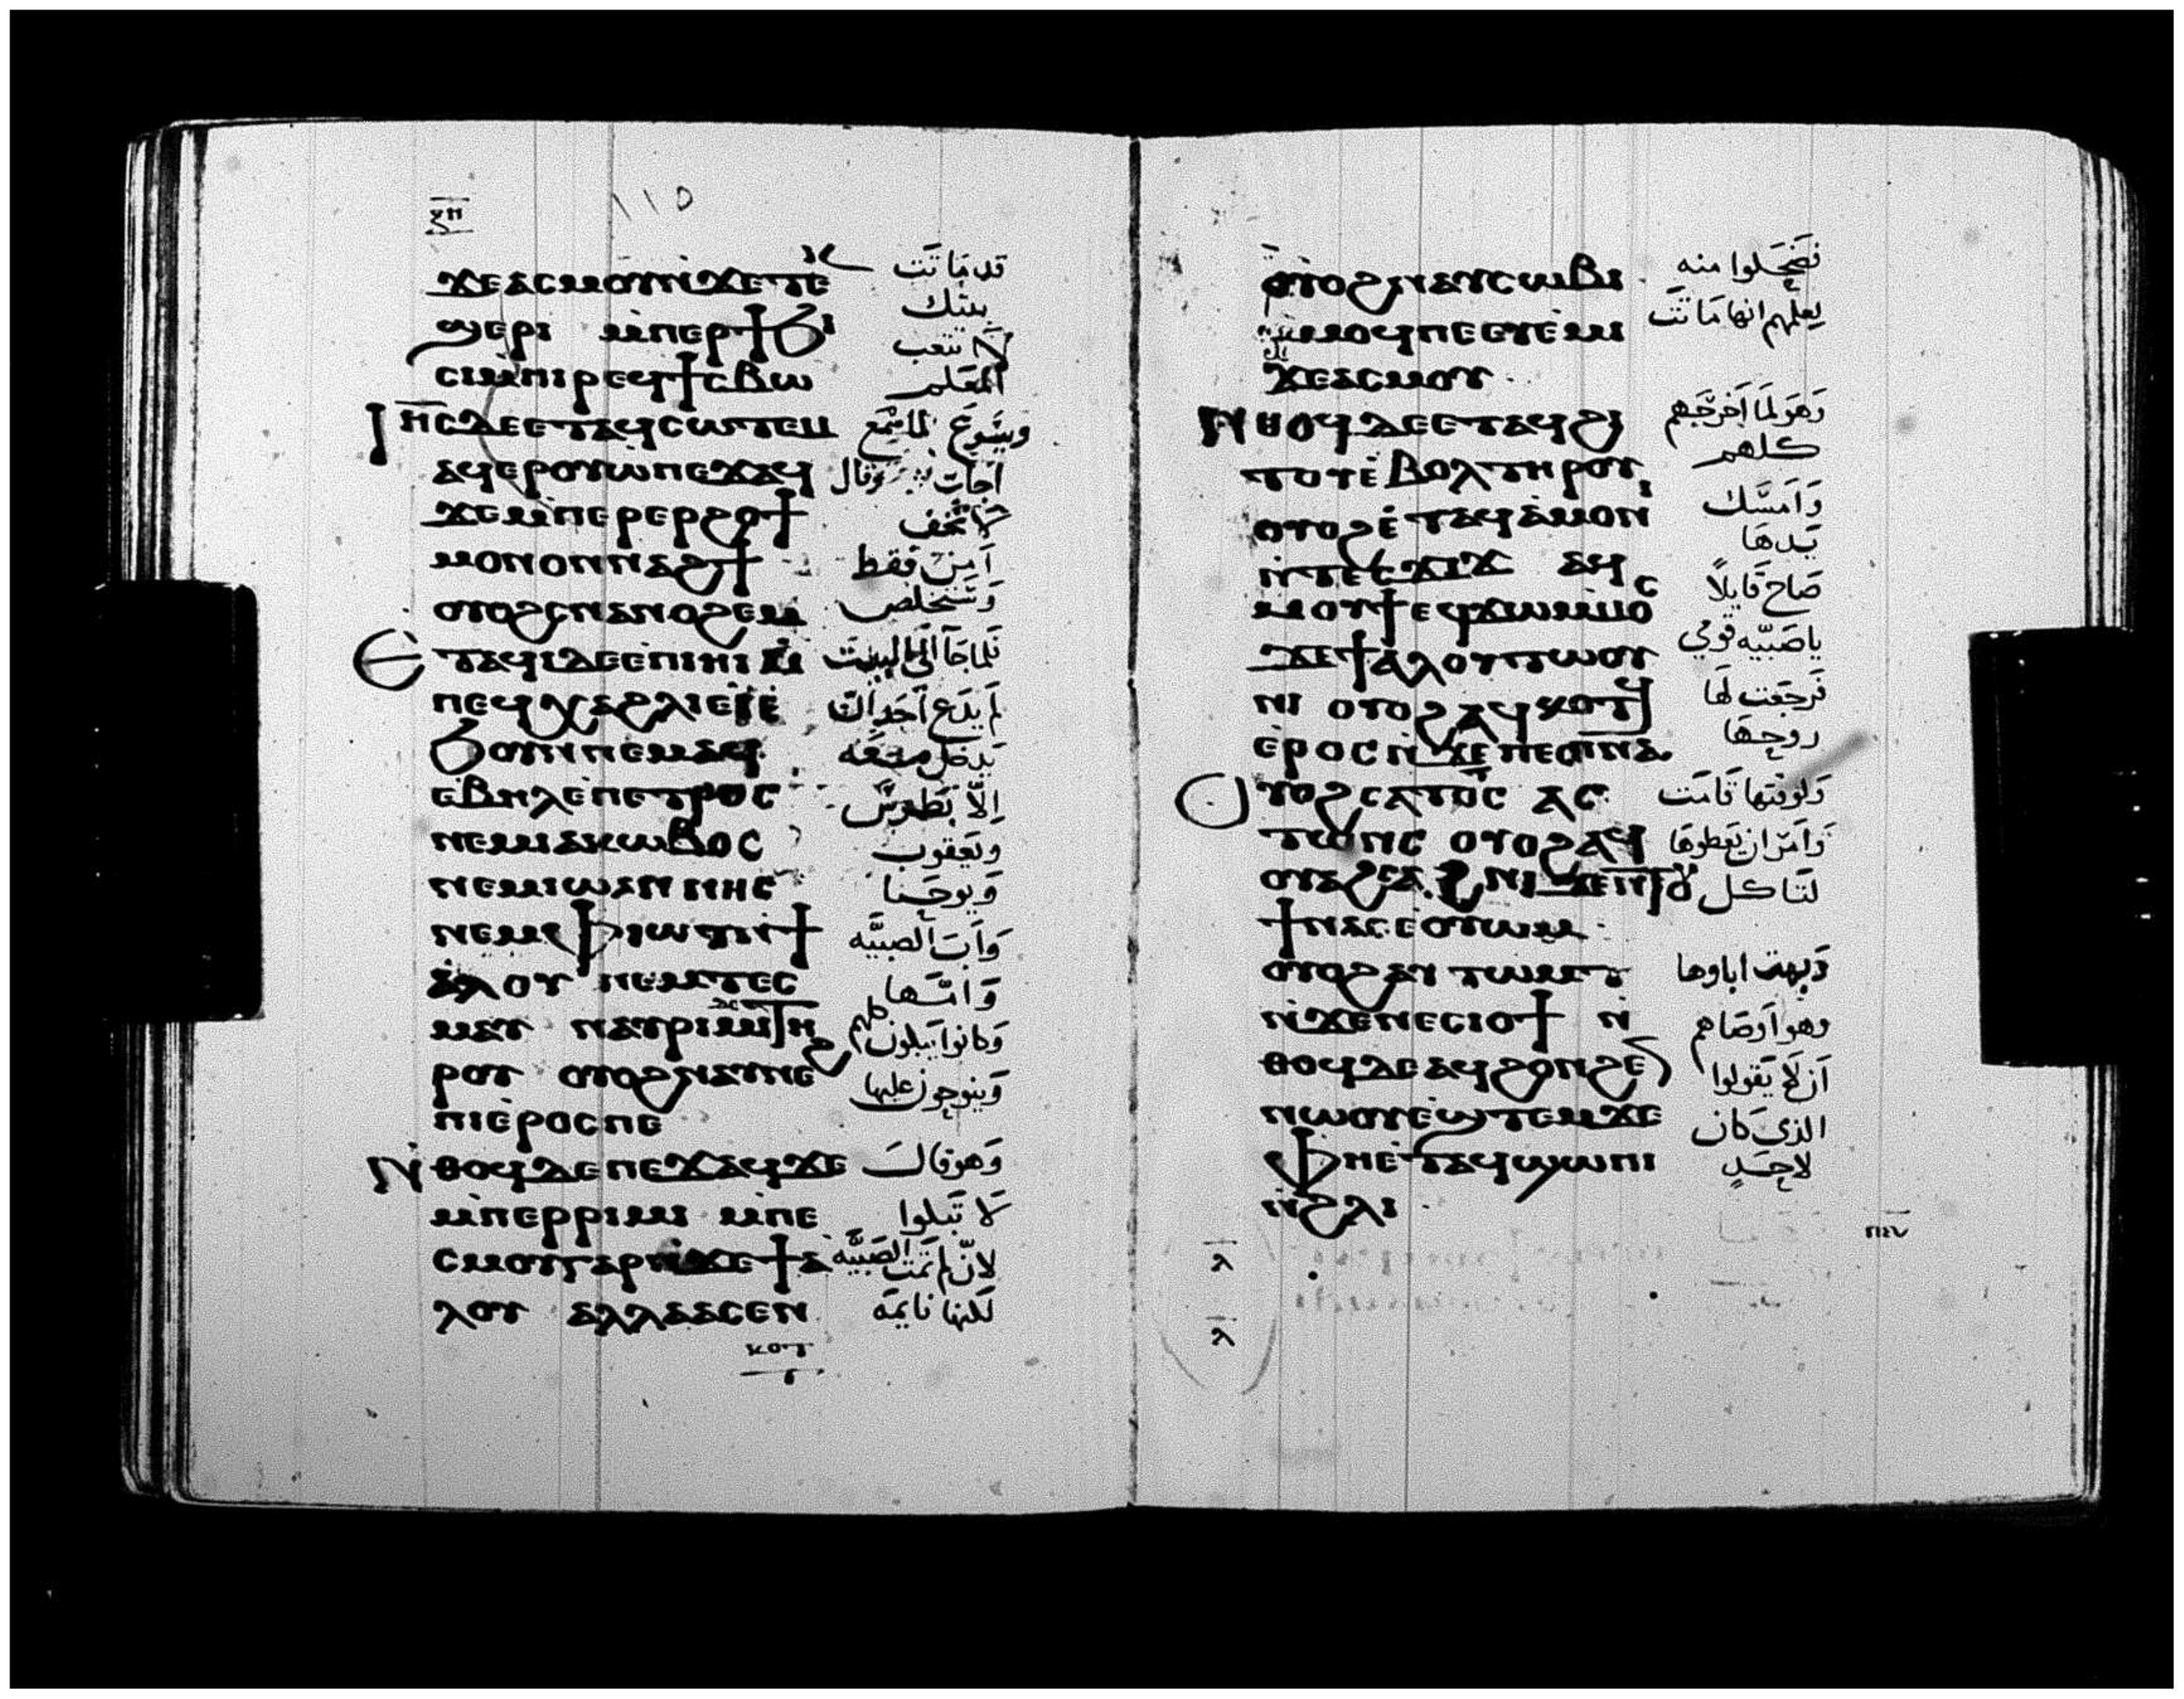 ⲝⲏ
١١٥
ϫⲉⲁⲥⲙⲟⲩⲛ̀ϫⲉⲧⲉⲕ قد مَاتَت
ϣⲉⲣⲓ ⲙ̀ⲡⲉⲣϯϧⲓ بنتك
ⲥⲓⲙ̀ⲡⲓⲣⲉϥϯⲥⲃⲱ لا تتعب المعَلم
ⲓⲏⲥⲇⲉⲉⲧⲁϥⲥⲱⲧⲉⲙ ويسُوعَ لما سَمِع
ⲁϥⲉⲣⲟⲩⲱ̀ⲡⲉϫⲁϥ اجَابَ وَقال
ϫⲉⲙ̀ⲡⲉⲣⲉⲣϩⲟϯ لا تخف
ⲙⲟⲛⲟⲛⲛⲁϩϯ آمن فقط
ⲟⲩⲟϩⲥⲛⲁⲛⲟϩⲉⲙ وَتَستخلص
ⲉⲧⲁϥⲓⲇⲉⲉⲡⲓⲏⲓ ⲙ̀ فَلما جَآ الَى البيت
ⲡⲉϥⲭⲁϩⲗⲓⲉ̀ⲓ̀ⲉ̀ لم يدَع أحَد ان
ϧⲟⲩⲛⲛⲉⲙⲁϥ يَدخل مَعَه
ⲉ̀ⲃⲏⲗⲉ̀ⲡⲉⲧⲣⲟⲥ اِلّا بَطرسُ
ⲛⲉⲙⲓⲁⲕⲱⲃⲟⲥ ويَعقوب
ⲛⲉⲙⲓⲱⲁⲛⲛⲏⲥ وَيوحَنا
ⲛⲉⲙⲫⲓⲱⲧⲛ̀ϯ وَاَبَ الصبيَّه
ⲁ̀ⲗⲟⲩ ⲛⲉⲙⲧⲉⲥ وَامَّها
ⲙⲁⲩ ⲛⲁⲩⲣⲓⲙⲓⲧⲏ وَكانوا يَبكون كلهم
ⲣⲟⲩ ⲟⲩⲟϩⲛⲁⲩⲛⲉϩ وَينوحون عليها
ⲡⲓⲉ̀ⲣⲟⲥⲡⲉ
ⲛ̀ⲑⲟϥⲇⲉⲡⲉϫⲁϥϫⲉ وَهو قالَ
ⲙ̀ⲡⲉⲣⲣⲓⲙⲓ ⲙ̀ⲡⲉ لَا تَبكوا
ⲥⲙⲟⲩⲅⲁⲣⲛ̀ϫⲉϯⲁ لانّ لم تمت الصَبيَّه
ⲗⲟⲩ ⲁⲗⲗⲁⲁⲥⲉⲛ لَكنها نايمَه
ⲕⲟⲧ
ⲟⲩⲟϩⲛⲁⲩⲥⲱⲃⲓ فَضحَكوا منه
ⲙ̀ⲙⲟϥⲡⲉⲉⲩⲉ̀ⲙⲓ لعِلمهم انها مَاتَت
ϫⲉⲁⲥⲙⲟⲩ
ⲛ̀ⲑⲟϥⲇⲉⲉⲧⲁϥϩⲓ وَهوَ لمَا اَخرجَهم
ⲧⲟⲧⲉ̀ⲃⲟⲗⲧⲏⲣⲟⲩ كلهم
ⲟⲩⲟϩⲉ̀ⲧⲁϥⲁ̀ⲙⲟⲛⲓ وَاَمسَك
ⲛ̀ⲧⲉⲥϫⲓϫ ⲁϥ يَدهَا
ⲙⲟⲩϯⲉϥϫⲱⲙⲙⲟⲥ صَاح قَايلاً
ϫⲉϯⲁⲗⲟⲩⲧⲱⲟⲩ ياصَبيّه قومي
ⲛⲓ ⲟⲩⲟϩⲁϥⲕⲟⲧϥ فَرجَعَت لَها
ⲉ̀ⲣⲟⲥⲛ̀ϫⲉⲡⲉⲥⲡⲛⲁ روحهَا
ⲟⲩⲟϩⲥⲁⲧⲟⲥ ⲁⲥ وَلوقتها قَامَت
ⲧⲱⲛⲥ ⲟⲩⲟϩⲁϥ وَاَمَر ان يَعطوهَا
ⲟⲩⲁϩⲥⲁϩⲛⲓϫⲉⲛⲧⲟⲩ لتَاكل
ϯⲛⲁⲥⲉ̀ⲟⲩⲱⲙ
ⲟⲩⲟϩⲁⲩⲧⲱⲙⲧ وَبهت اباوها
ⲛ̀ϫⲉⲛⲉⲥⲓⲟϯ ⲛ̀ وهوَ اَوصَاهم
ⲑⲟϥⲇⲉⲁϥϩⲟⲛϩⲉⲛ اَن لَا يَقولوا
ⲛⲱⲟⲩⲉ̀ϣⲧⲉⲙϫⲉ الذي كَان
ⲫⲏⲉ̀ⲧⲁϥϣⲱⲡⲓ لاحَدٍ
ⲛ̀ϩⲗⲓ
ⲗ
ⲗ